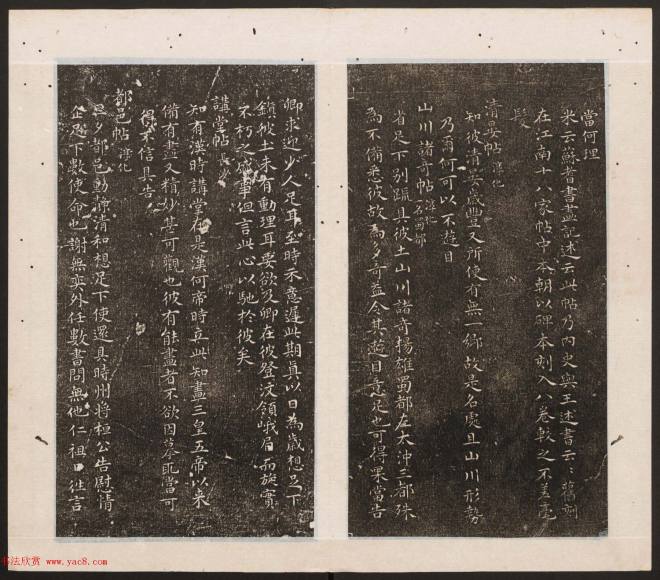 當何理
米云蘇耆書盡記述云此帖乃內史與王述書云云舊刻
在江南十八家帖中本朝以碑本刻入八卷較之不差毫
髮
清晏帖 淳化
知彼清晏歲豐又所使有無一鄉故是名處且山川形勢
乃爾何可以不遊目
山川諸奇帖
省足下別疏具彼土山川諸奇揚雄蜀都左太沖三都殊
為不備悉彼故為多奇益令其遊目意足也可得果當告
卿求迎少人足耳至時示意遲此期真以日為歲想足下
鎮彼土未有動理耳要欲及卿在彼登汶領峨眉而旋實
不朽之盛事但言此心以馳於彼矣
講堂帖
知有漢時講堂在是漢何帝時立此知畫三皇五帝以來
備有畫又精妙甚可觀也彼有能畫者不欲因摹取當可
得不信具告
都邑帖 淳化
旦夕都邑動靜清和想足下使還具時州將桓公告慰情
企足下數使命也謝無奕外任數書問無他仁祖日往言
书法欣赏 www.yac8.com